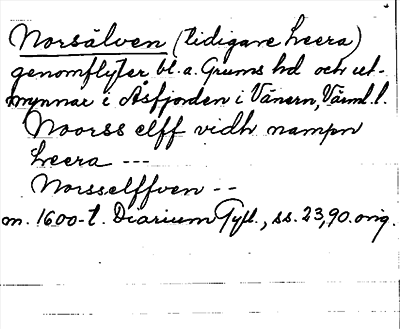 Norsälven (tidigare Lveera)
genomflyter bl.a. Grums hd och ut-
mynnar i Åsfjorden i Vänern, Värml. l.
Noorss elff vidh nampn
Lveera ---
Norsselffven --
m. 1600-t. Diarium Gyll., ss. 23, 90. orig.